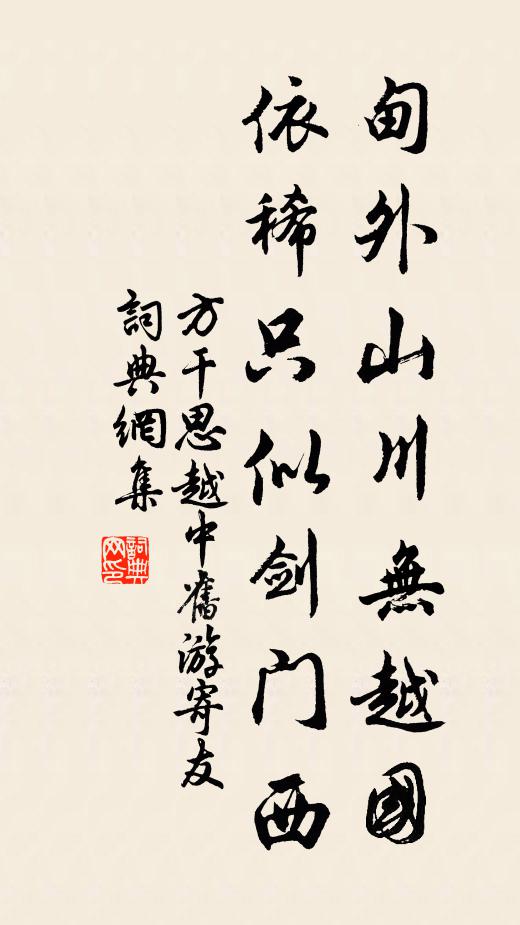 甸外山川無越國
依稀只似剑门西
方干思越中舊游寄友
詞典網集
詞典网印